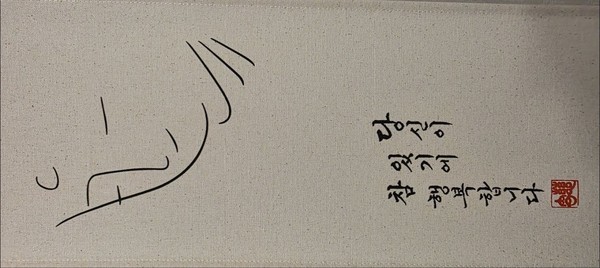 당신이
있기에
참 행복합니다